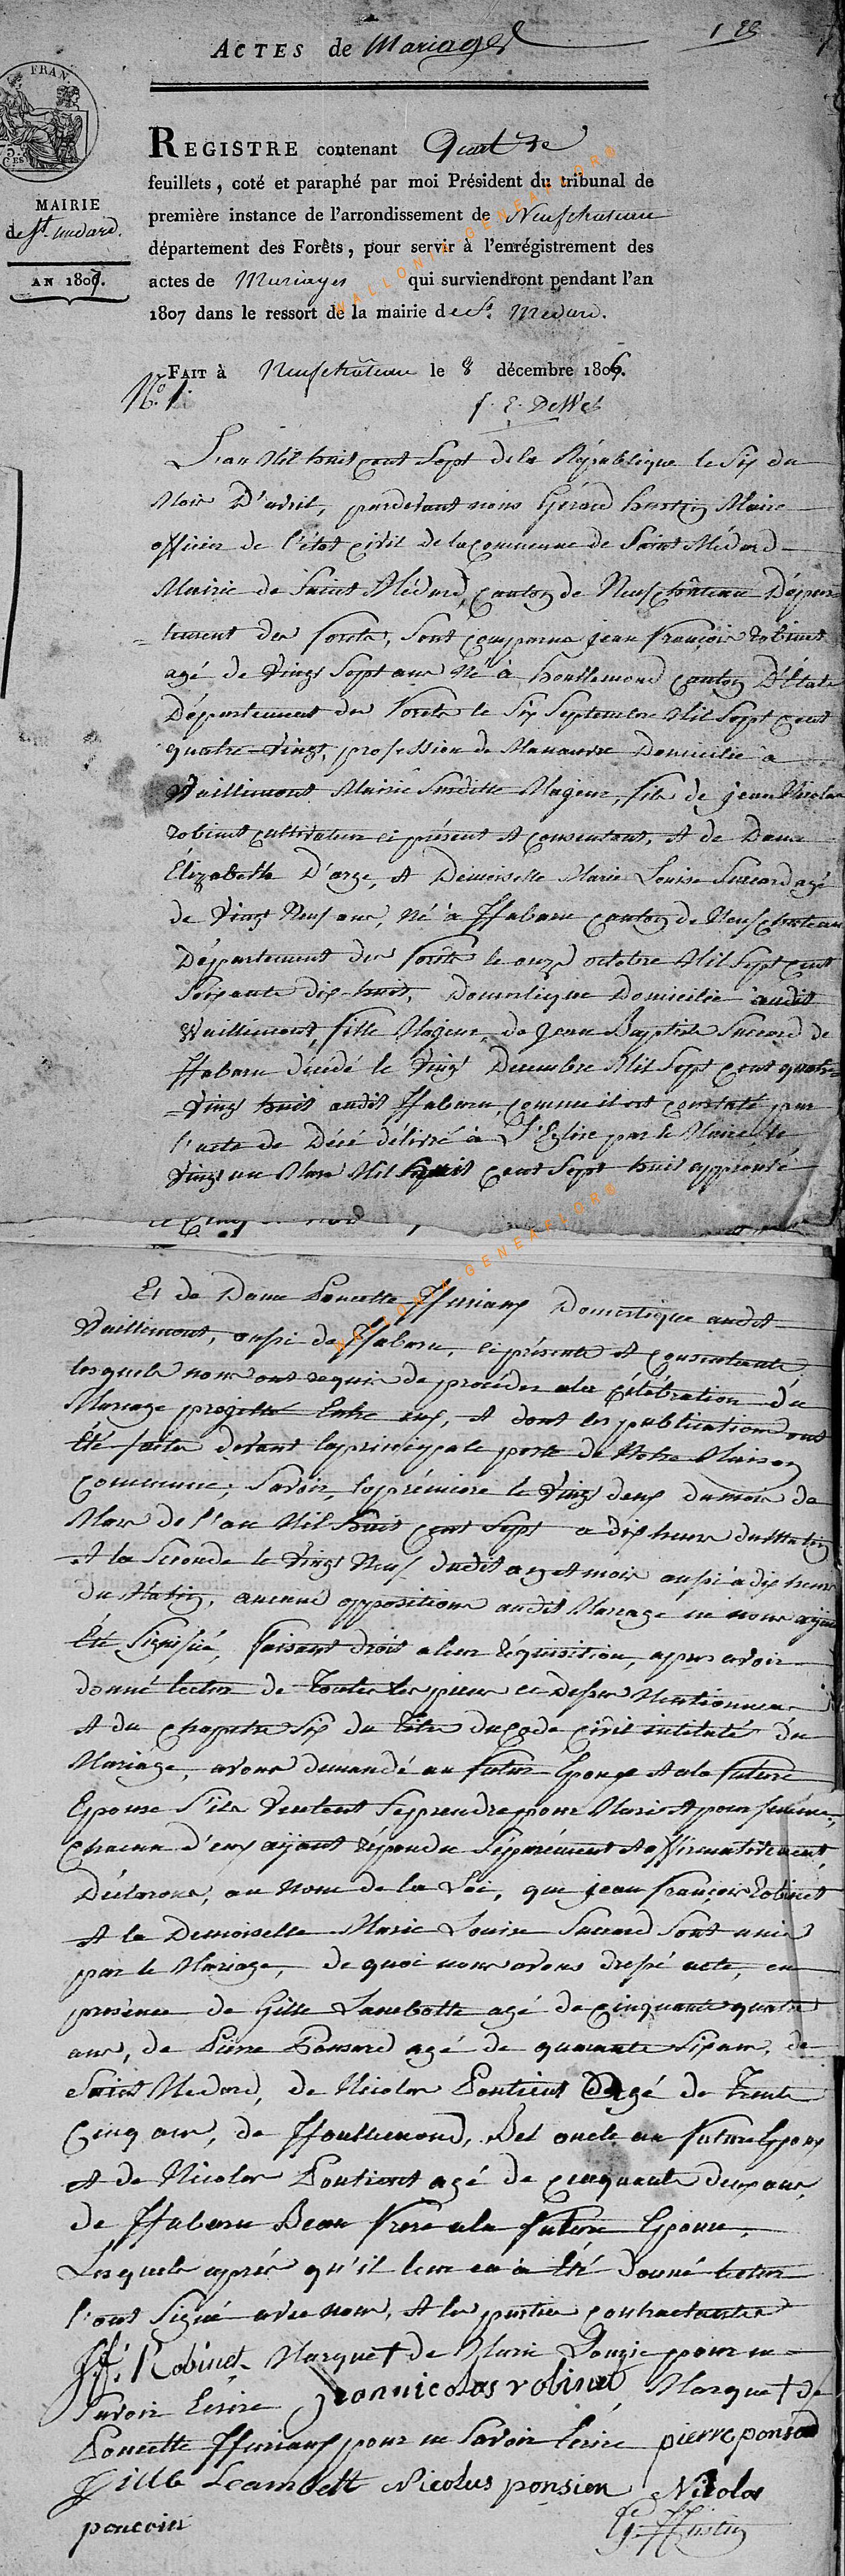 ACTES de Mariages
FRAN.
REGISTRE contenant Quatre
feuillets, coté et paraphé par moi Président du tribunal de
première instance de l'arrondissement de Neufchateau
département des Forêts, pour servir à l'enrégistrement des
actes de Mariages qui surviendront pendant l'an
1807 dans le ressort de la mairie de St. Medard.
MAIRIE
de St. Medard.
AN 1807.
FAIT à Neufchâteau le 8 décembre 1806.
No. 1.
L'an Mil huit cent Sept de la République le Six du
Mois D'avril, pardevant nous Gérard hustin Maire
officier de l'état civil de la Commune de Saint Médard
Mairie de Saint Médard, canton de Neufchâteau Dépar
tement des forets, Sont comparus jean françois robinet
agé de vingt Sept ans Né à houllemond canton D'Étale
Département des Forets le Six Septembre Mil Sept cent
quatre-vingt, profession de Manauvre Domicilié à
Waillimont Mairie Susditte Majeur, fils de jean Nicolas
robinet cultivateur ci présent et consentant, et de Dame
Élizabethe D'arge, et Demoiselle Marie Louise Suzard agé
de vingt Neuf ans, Né à ffabaru canton de Neufchateau
Département des Forêts le onze octobre Mil Sept cent
Soixante dix-huit, Domestique Domiciliée audit
Waillimont, fille Majeur, de Jean Baptiste Suzard de
ffabaru décédé le vingt Decembre Mil Sept cent quatre
-vingt huit audit ffabaru, comme il est constaté par
l'acte de Décé délivré à L'Eglise par le Maire le
vingt un Mars Mil huit cent Sept huit approuvé
Et de Dame Poncette ffuriaux Domestique audit
Vaillimont, aussi de ffabaru, ci présente et consentante
lesquels nous ont requis de procéder à la célébration du
Mariage projetté Entre eux, et dont les publications ont
Été faites devant la principale porte de Notre Maison
commune, Savoir, la premiere le vingt deux du mois de
Mars de l'an Mil huit cent Sept a dix heures du Matin
et la Seconde le vingt Neuf dudit an et mois aussi à dix heures
du Matin, aucune opposition audit Mariage ne nous ayant
Été Signifiée, faisant droit à leur réquisition, apres avoir
donné lecture de Toutes les pieces ci Dessus Mentionnées
et du chapitre Six du Titre du Code Civil intitulé du
Mariage, avons demandé au futur Epoux et à la future
Epouse S'ils veulent Se prendre pour Mari et pour femme,
chacun d'eux ayant répondu Séparément et affirmativement
Déclarons, au Nom de la Loi, que jean françois Robinet
et la Demoiselle Marie Louise Suzard Sont unis
par le Mariage, de quoi nous avons dressé acte, en
présence de Gille Lambotte agé de cinquante quatre
ans, de Pierre Ponsard agé de quarante Six ans, de
Saint Medard, de Nicolas Pontient agé de Trente
Cinq ans, de ffoullemond, Bel oncle au futur Epoux
et de Nicolas Pontient agé de cinquante deux ans,
de ffabaru Beau Frere à la future Epouse,
Lesquels après qu'il leur en a Été donné lecture
l'ont Signé avec nous, et les parties contractantes
J.f. Robinet Marque + de Marie Louise pour ne
Savoir Ecrire jean nicolas robinet Marque + de
Poncette ffuriaux pour ne Savoir Ecrire pierre ponsard
Gille Lambott Nicolus ponsien Nicolas
poncein G. ffustin
WALLONIA-GENEAFLORE
WALLONIA-GENEAFLORE